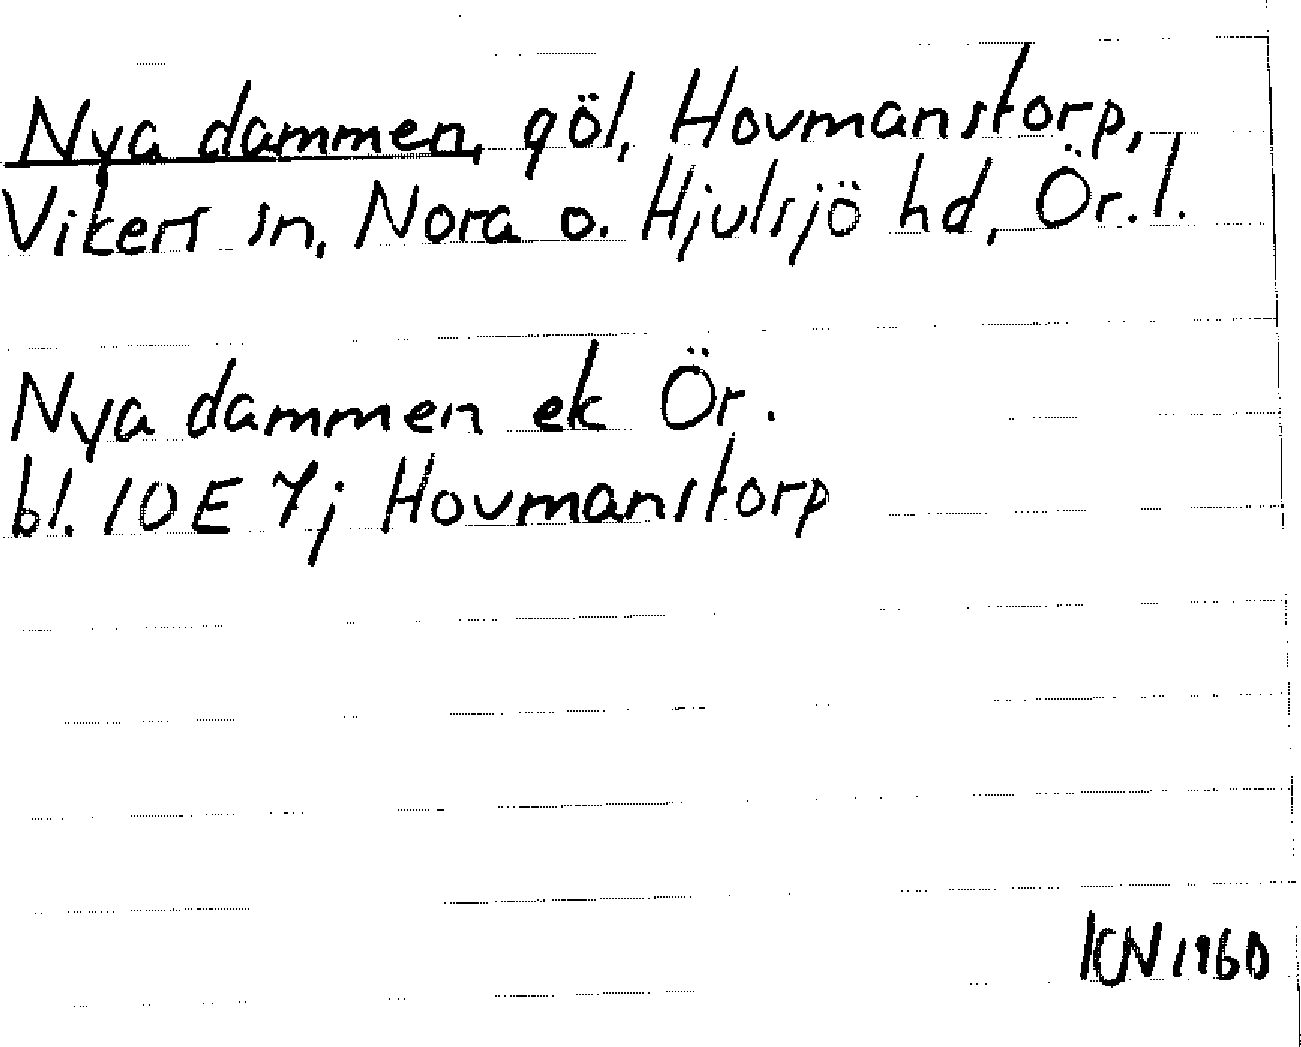 Nya dammen, göl, Hovmanstorp,
Vikers sn, Nora o. Hjulsjö hd, Ör. l.
Nya dammen ek Ör.
bl. 10E 7j Hovmanstorp
KN 1960